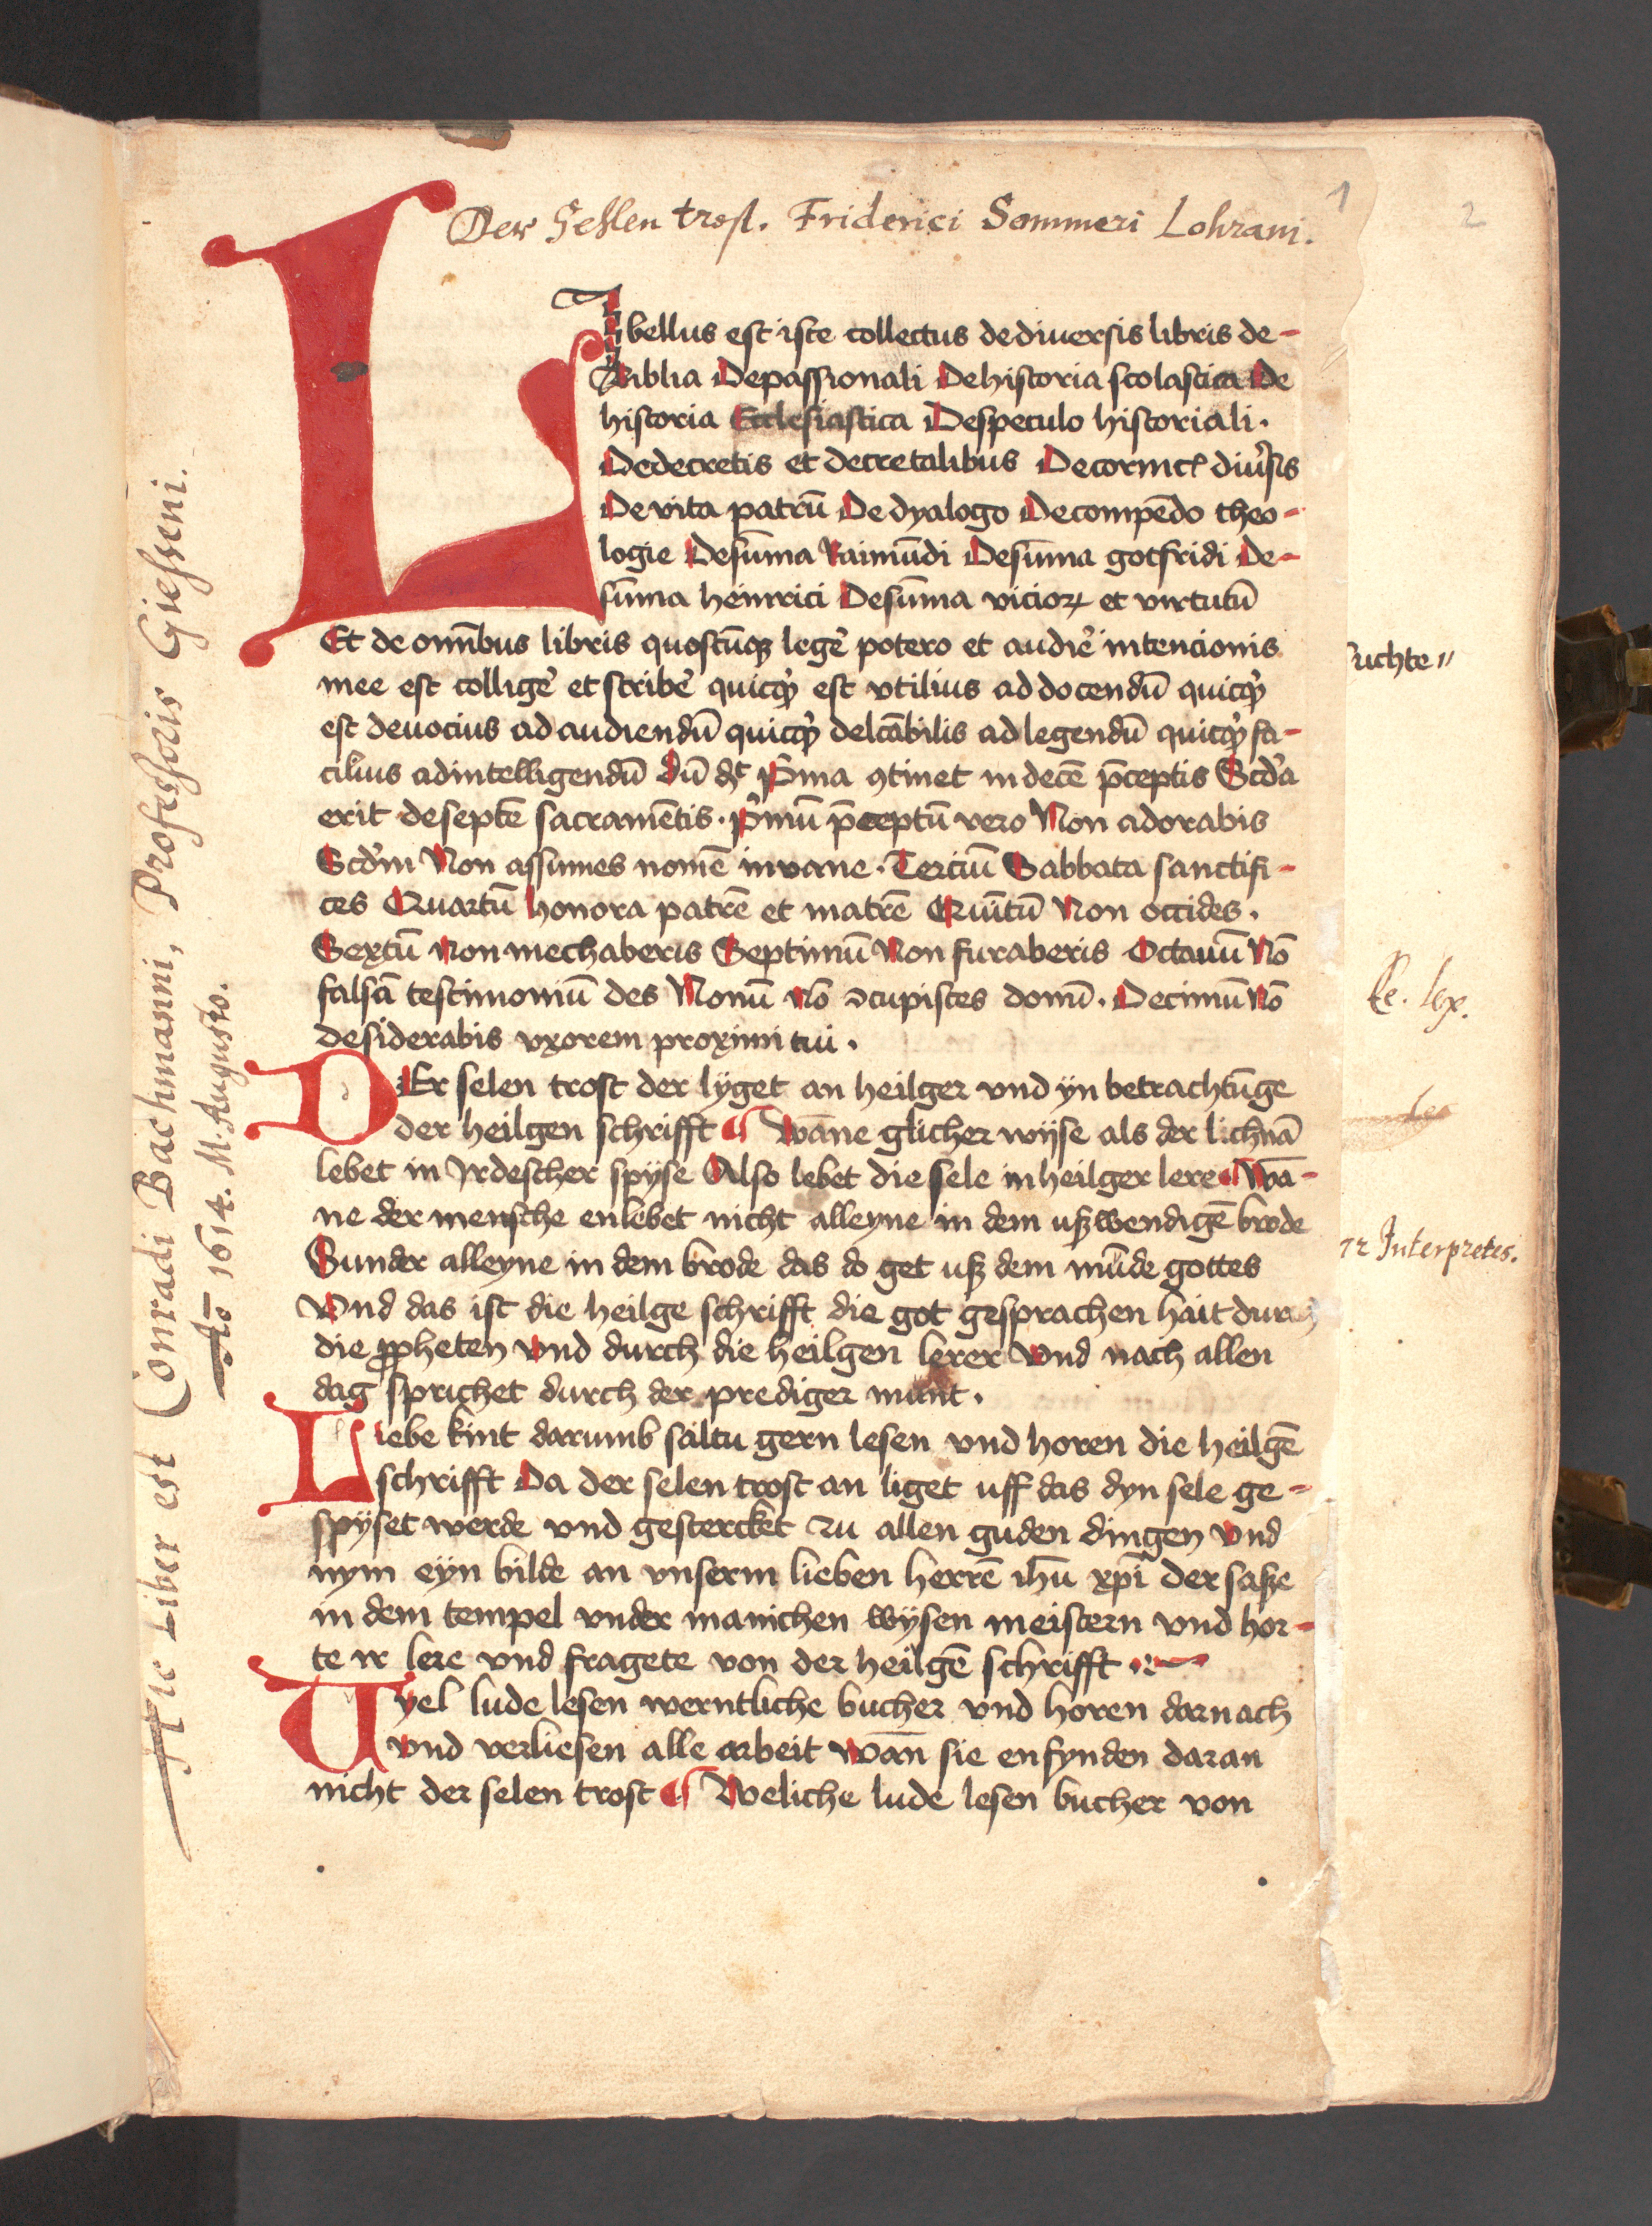 Der Sehlen trost. Friderici Sommeri Lohrani.
1
2
Libellus est iste collectus de diuersis libris de-
Biblia De passionali De historia scolastica De
historia Ecclesiastica De speculo historiali.
De decretis et decretalibus De cormct̛ diũsis
De vita patrũ De dyalogo De compẽdo theo-
logie De sum̃a Raimũdi De sum̃a gotfridi De-
sum̃a heinrici De sum̃a vicioꝝ et virtutũ
Et de omĩbus libris quoscũqꝫ legẽ potero et audiẽ intencionis
mee est colligẽ et scribẽ quicq̛d est vtilius ad docendũ quicq̛d
est deuocius ad audiendũ quicq̛d delcãbilis ad legendũ quicq̛d fa-
cilius ad intelligendũ Dũ dꝰ p̛ma ꝯtinet in decẽ p̄ceptis Scd̛a
erit de septẽ sacramẽtis. p̛mũ p̄ceptũ vero Non adorabis
Scd̛m Non assumes nomẽ in vane. Terciũ Sabbata sanctifi-
ces Quartũ honora patrẽ et matrẽ Quĩtũ Non occides.
Sextũ Non mechaberis Septimũ Non furaberis Octauũ Nõ
falsã testimoniũ des Nonũ nõ ꝯcupisces domũ. Decimũ Nõ
desiderabis vxorem proximi tui.
DEr selen trost der lÿget an heilger vnd ÿn betrachtũge
der heilgen schrifft ¶ Wãne glicher wÿse als der lichnã
lebet in Jrdescher spÿse Also lebet die sele in heilger lere ¶ Wã-
ne der mensche enlebet nicht alleyne in dem ußwendigẽ brode
Sunder alleyne in dem brode das do get uß dem mũde gottes
Vnd das ist die heilge schrifft die got gesprachen hait durch
die ꝓpheten vnd durch die heilgen lerer Vnd nach allen
dag sprichet durch der prediger munt.
Liebe kint darumb saltu gern lesen vnd horen die heilgẽ
schrifft Da der selen trost an liget uff das dyn sele ge-
spÿset werde vnd gestercket zu allen guden dingen vnd
nym eyn bilde an vnserm lieben herrẽ ihũ xp̄i der saße
in dem tempel vnder manichen wÿsen meistern vnd hor-
te ir lere vnd fragete von der heilgẽ schrifft
Vyel lude lesen werntliche bucher vnd horen darnach
vnd verliesen alle arbeit wan̄ sie enfynden daran
nicht der selen trost ¶ Weliche lude lesen bucher von
Hic Liber est Conradi Bachmanni, Professoris Giesseni.
Aõ 1614. M. Augusto.
suchte
lex.
Interpretes.